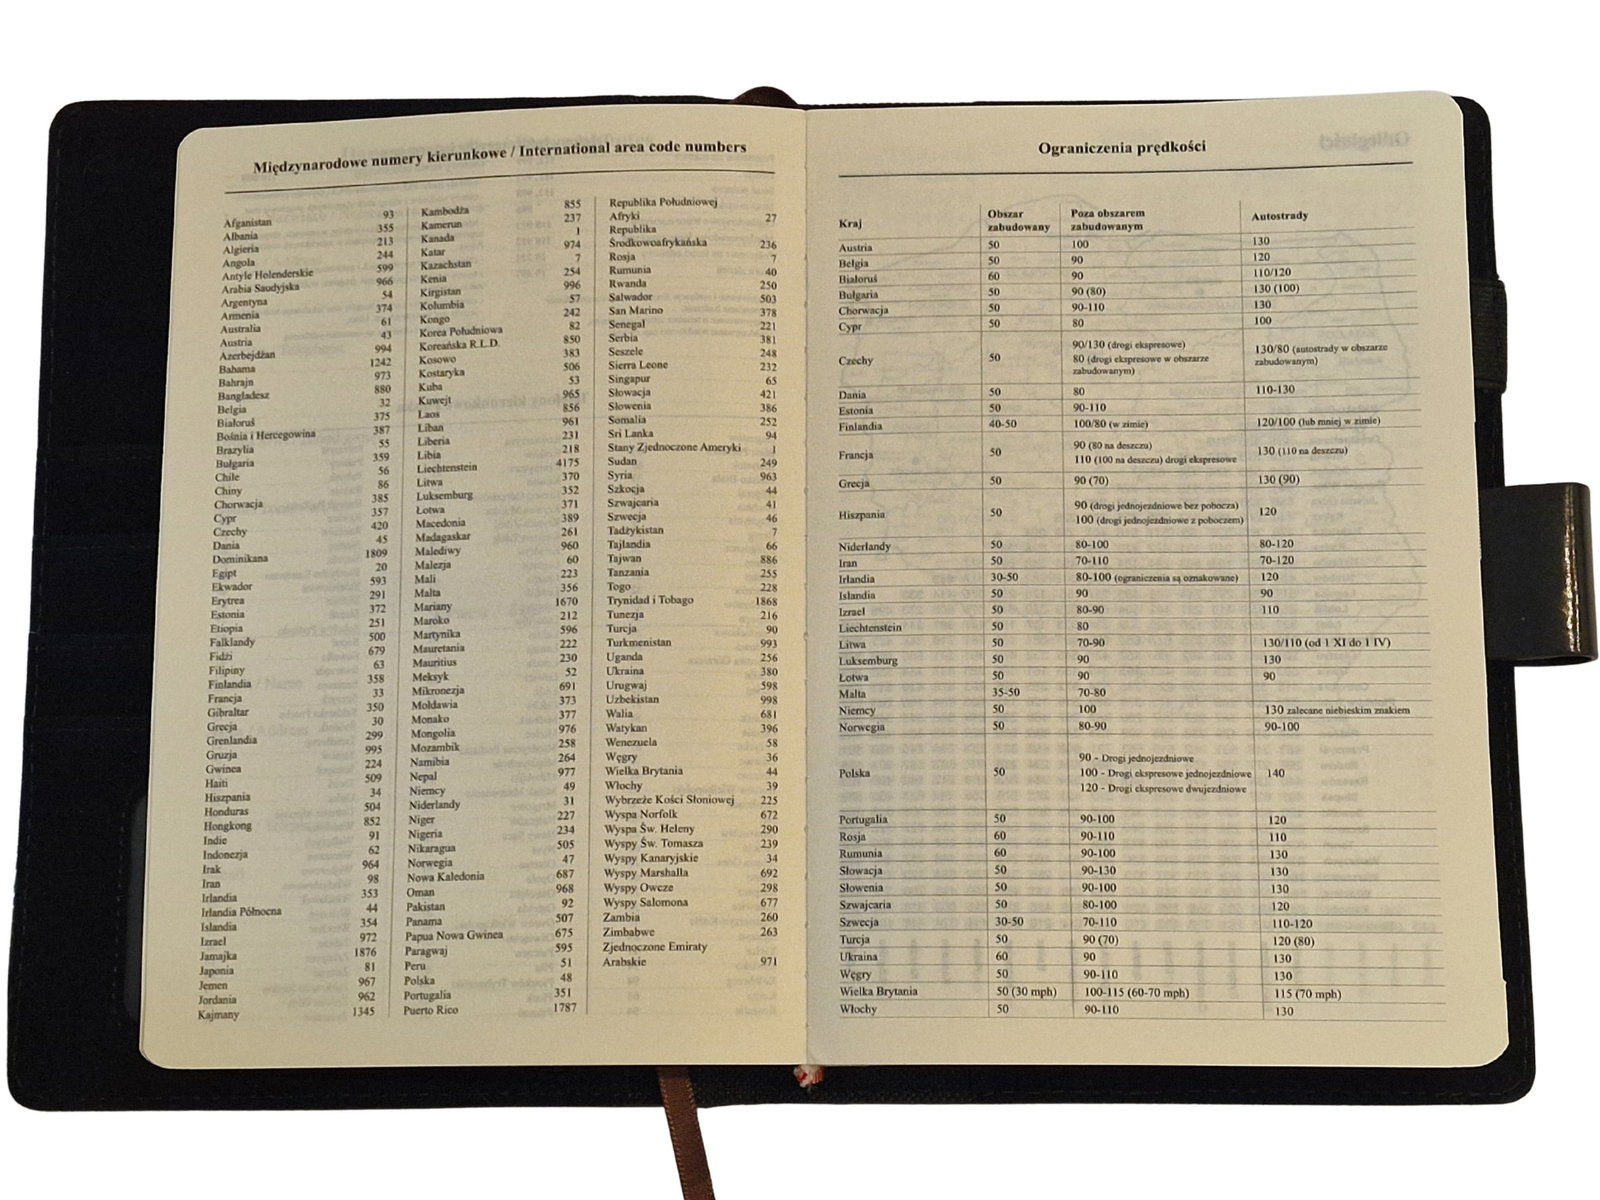 Międzynarodowe numery kierunkowe / International area code numbers
Afganistan 93
Albania 355
Algieria 213
Angola 244
Antyle Holenderskie 599
Arabia Saudyjska 966
Argentyna 54
Armenia 374
Australia 61
Austria 43
Azerbejdżan 994
Bahama 1242
Bahrajn 973
Bangladesz 880
Belgia 32
Białoruś 375
Bośnia i Hercegowina 387
Brazylia 55
Bułgaria 359
Chile 56
Chiny 86
Chorwacja 385
Cypr 357
Czechy 420
Dania 45
Dominikana 1809
Egipt 20
Ekwador 593
Erytrea 291
Estonia 372
Etiopia 251
Falklandy 500
Fidżi 679
Filipiny 63
Finlandia 358
Francja 33
Gibraltar 350
Grecja 30
Grenlandia 299
Gruzja 995
Gwinea 224
Haiti 509
Hiszpania 34
Honduras 504
Hongkong 852
Indie 91
Indonezja 62
Irak 964
Iran 98
Irlandia 353
Irlandia Północna 44
Islandia 354
Izrael 972
Jamajka 1876
Japonia 81
Jemen 967
Jordania 962
Kajmany 1345
Kambodża 855
Kamerun 237
Kanada 1
Katar 974
Kazachstan 7
Kenia 254
Kirgistan 996
Kolumbia 57
Kongo 242
Korea Południowa 82
Koreańska R.L.D. 850
Kosowo 383
Kostaryka 506
Kuba 53
Kuwejt 965
Laos 856
Liban 961
Liberia 231
Libia 218
Liechtenstein 4175
Litwa 370
Luksemburg 352
Łotwa 371
Macedonia 389
Madagaskar 261
Malediwy 960
Malezja 60
Mali 223
Malta 356
Mariany 1670
Maroko 212
Martynika 596
Mauretania 222
Mauritius 230
Meksyk 52
Mikronezja 691
Mołdawia 373
Monako 377
Mongolia 976
Mozambik 258
Namibia 264
Nepal 977
Niemcy 49
Niderlandy 31
Niger 227
Nigeria 234
Nikaragua 505
Norwegia 47
Nowa Kaledonia 687
Oman 968
Pakistan 92
Panama 507
Papua Nowa Gwinea 675
Paragwaj 595
Peru 51
Polska 48
Portugalia 351
Puerto Rico 1787
Republika Południowej
Afryki 27
Republika
Środkowoafrykańska 236
Rosja 7
Rumunia 40
Rwanda 250
Salwador 503
San Marino 378
Senegal 221
Serbia 381
Seszele 248
Sierra Leone 232
Singapur 65
Słowacja 421
Słowenia 386
Somalia 252
Sri Lanka 94
Stany Zjednoczone Ameryki 1
Sudan 249
Syria 963
Szkocja 44
Szwajcaria 41
Szwecja 46
Tadżykistan 7
Tajlandia 66
Tajwan 886
Tanzania 255
Togo 228
Trynidad i Tobago 1868
Tunezja 216
Turcja 90
Turkmenistan 993
Uganda 256
Ukraina 380
Urugwaj 598
Uzbekistan 998
Walia 681
Watykan 396
Wenezuela 58
Węgry 36
Wielka Brytania 44
Włochy 39
Wybrzeże Kości Słoniowej 225
Wyspa Norfolk 672
Wyspa Św. Heleny 290
Wyspy Św. Tomasza 239
Wyspy Kanaryjskie 34
Wyspy Marshalla 692
Wyspy Owcze 298
Wyspy Salomona 677
Zambia 260
Zimbabwe 263
Zjednoczone Emiraty
Arabskie 971
Ograniczenia prędkości
Kraj Obszar zabudowany Poza obszarem zabudowanym Autostrady
Austria 50 100 130
Belgia 50 90 120
Białoruś 60 90 110/120
Bułgaria 50 90 (80) 130 (100)
Chorwacja 50 90-110 130
Cypr 50 80 100
Czechy 50 90/130 (drogi ekspresowe)
80 (drogi ekspresowe w obszarze
zabudowanym)
130/80 (autostrady w obszarze
zabudowanym)
Dania 50 80 110-130
Estonia 50 90-110
Finlandia 40-50 100/80 (w zimie) 120/100 (lub mniej w zimie)
Francja 50 90 (80 na deszczu)
110 (100 na deszczu) drogi ekspresowe
130 (110 na deszczu)
Grecja 50 90 (70) 130 (90)
Hiszpania 50 90 (drogi jednojezdniowe bez pobocza)
100 (drogi jednojezdniowe z poboczem)
120
Niderlandy 50 80-100 80-120
Iran 50 70-110 70-120
Irlandia 30-50 80-100 (ograniczenia są oznakowane) 120
Islandia 50 90 90
Izrael 50 80-90 110
Liechtenstein 50 80
Litwa 50 70-90 130/110 (od 1 XI do 1 IV)
Luksemburg 50 90 130
Łotwa 50 90 90
Malta 35-50 70-80
Niemcy 50 100 130 zalecane niebieskim znakiem
Norwegia 50 80-90 90-100
Polska 50 90 - Drogi jednojezdniowe
100 - Drogi ekspresowe jednojezdniowe
120 - Drogi ekspresowe dwujezdniowe
140
Portugalia 50 90-100 120
Rosja 60 90-110 110
Rumunia 60 90-100 130
Słowacja 50 90-130 130
Słowenia 50 90-100 130
Szwajcaria 50 80-100 120
Szwecja 30-50 70-110 110-120
Turcja 50 90 (70) 120 (80)
Ukraina 60 90 130
Węgry 50 90-110 130
Wielka Brytania 50 (30 mph) 100-115 (60-70 mph) 115 (70 mph)
Włochy 50 90-110 130